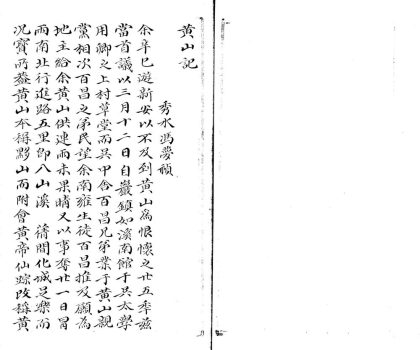 黄山記
秀水馮夢禎
余辛巳遊新安以不及到黄山為恨懷之廿五年兹
當首議以三月十二日自巖鎮如溪南館于吳太學
用卿之上村草堂而吳甲合百昌兄弟業于黄山親
黨相次百昌之弟民望余南雍生徒百昌推及願為
地主給余黄山供連雨未果晴又以事奪廿一日冒
雨南北行進路五里即八山溪 猜間化城足樂而
况寶所黄山本稱黟山而附會黄帝仙踪改稱黄